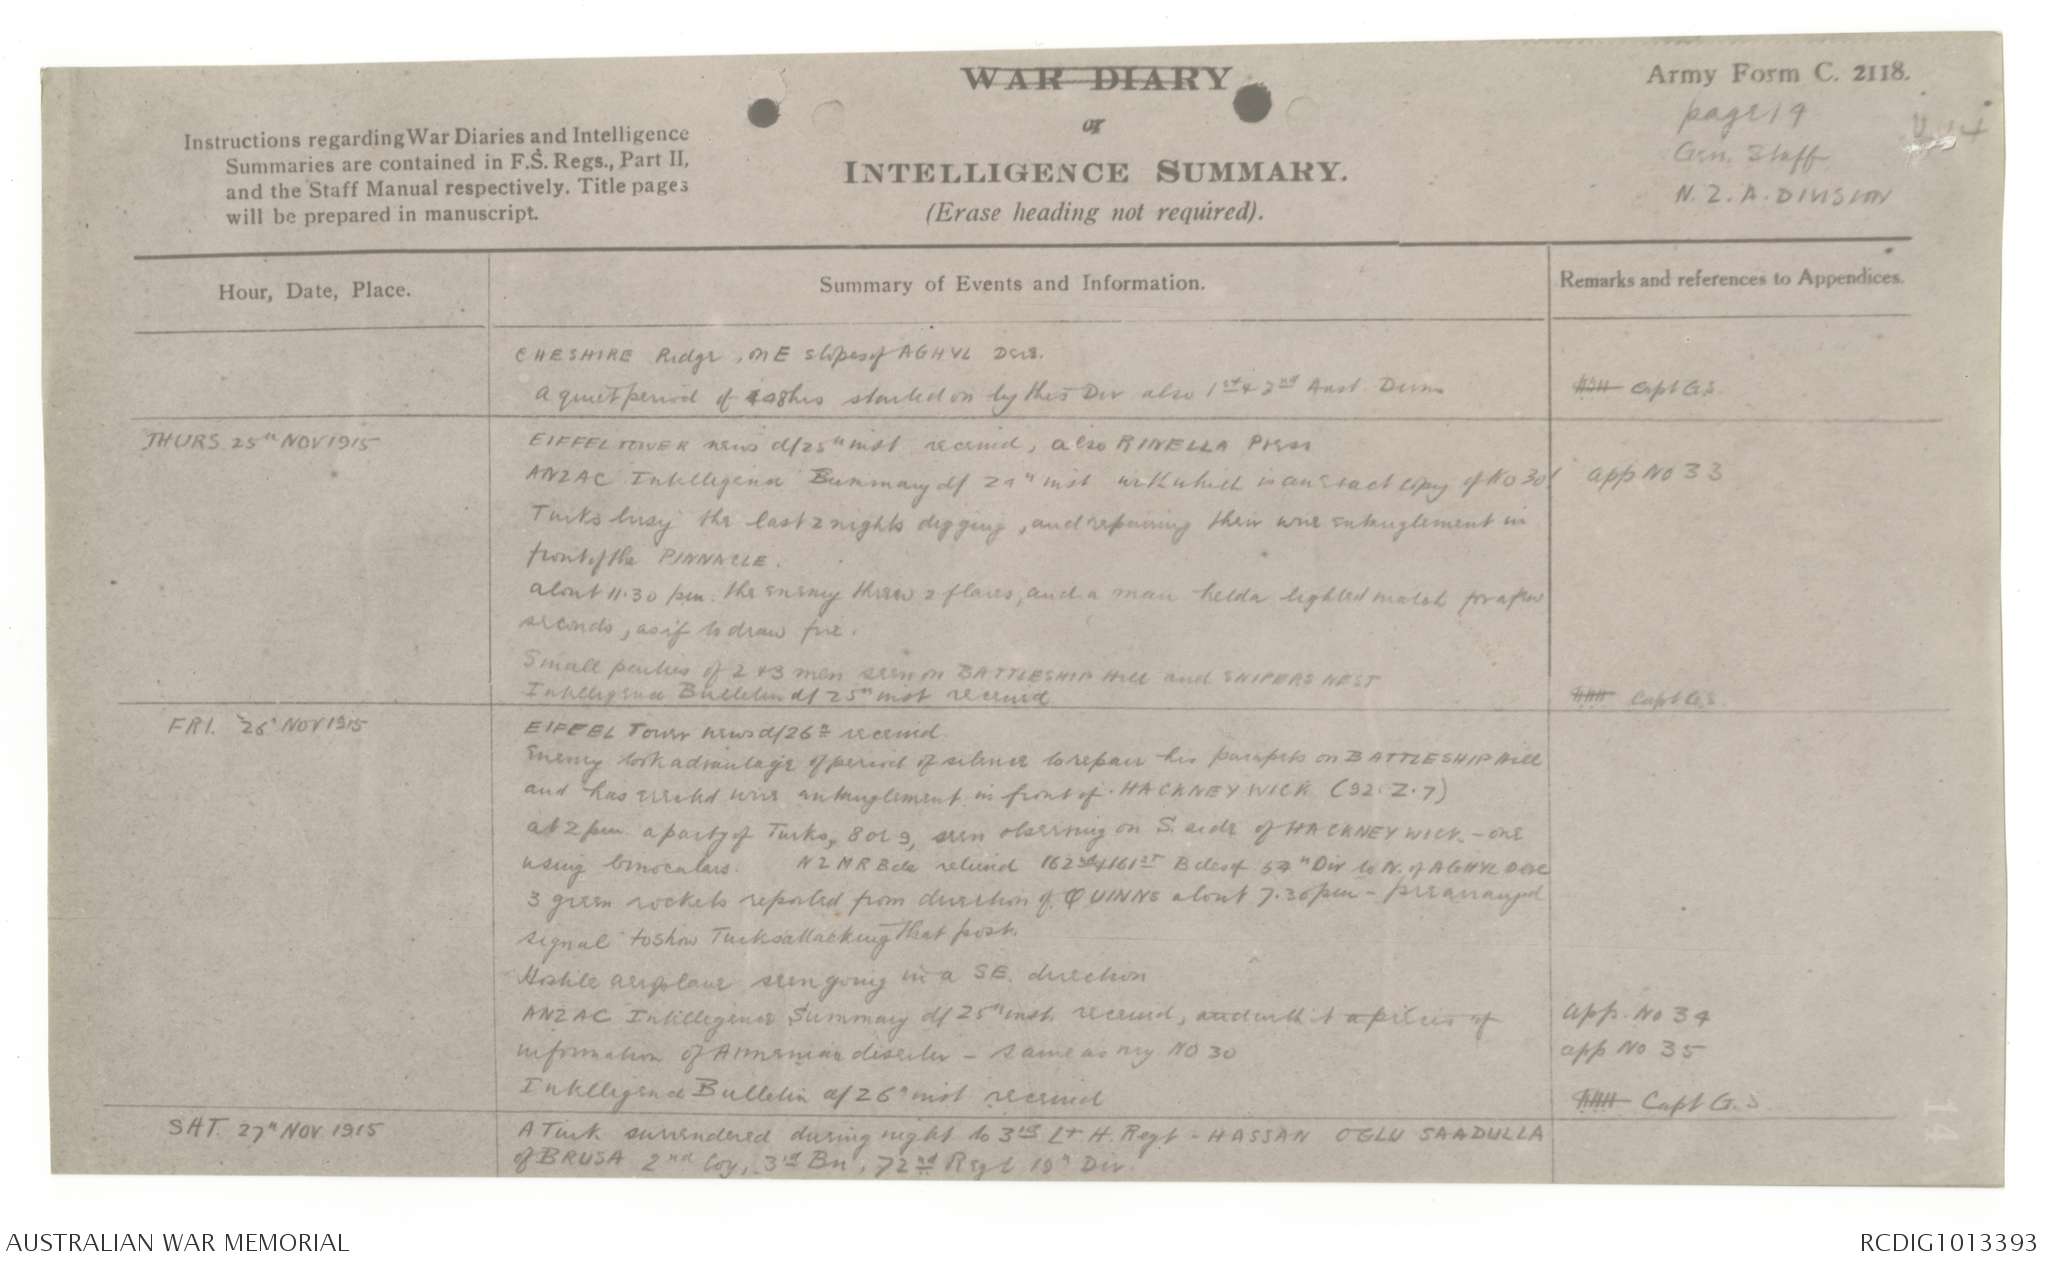 WAR DIARY
or
INTELLIGENCE SUMMARY.
(Erase heading not required).
Army Form C. 2118.
page 14
Gen. Staff
N.Z.A. DIVISION
Instructions regarding War Diaries and Intelligence
Summaries are contained in F.S. Regs., Part II,
and the Staff Manual respectively. Title pages
will be prepared in manuscript.
Hour, Date, Place.
Summary of Events and Information.
Remarks and references to Appendices.
CHESHIRE Ridge, on E slopes of AGHYL Dere.
A quiet period of 48 hrs started on by this Div also 1st & 2nd Aust. Divns
Capt G.S.
THURS 25th NOV 1915
EIFFEL TOWER news d/25th inst received, also RINELLA Press
ANZAC Intelligence Summary d/ 24th inst with which is an exact copy of No 30
app No 33
Turks busy the last 2 nights digging, and repairing their wire entanglement in
front of the PINNACLE.
about 11.30 pm. the enemy threw 2 flares, and a man held a lighted match for a few
seconds, as if to draw fire.
Small parties of 2 & 3 men seen on BATTLESHIP Hill and SNIPERS NEST
Intelligence Bulletin d/ 25th inst received
Capt G.S.
FRI. 26 NOV 1915
EIFFEL Tower news d/26th received.
Enemy took advantage of period of silence to repair his parapets on BATTLESHIP Hill
and has erected wire entanglement in front of HACKNEY WICK (92.Z.7)
at 2 pm. a party of Turks, 8 or 9, seen observing on S. side of HACKNEY WICK - one
using binoculars. NZMR Bde relieved 162nd & 161st Bdes of 54th Div to N. of AGHYL DERE
3 green rockets reported from direction of QUINNS about 7.30 pm - prearranged
signal to show Turks attacking that post.
Hostile aeroplane seen going in a SE. direction
ANZAC Intelligence Summary d/ 25th inst. received, and with it a pieces of
app. No 34
information of Armenian deserter - same as my NO 30
app No 35
Intelligence Bulletin d/ 26th inst received
Capt G.S.
SAT. 27th NOV 1915
A Turk surrendered during night to 3rd Lt H. Regt - HASSAN OGLU SAADULLA
of BRUSA 2nd Coy, 3rd Bn, 72nd Regt 19th Div.
14
AUSTRALIAN WAR MEMORIAL
RCDIG1013393